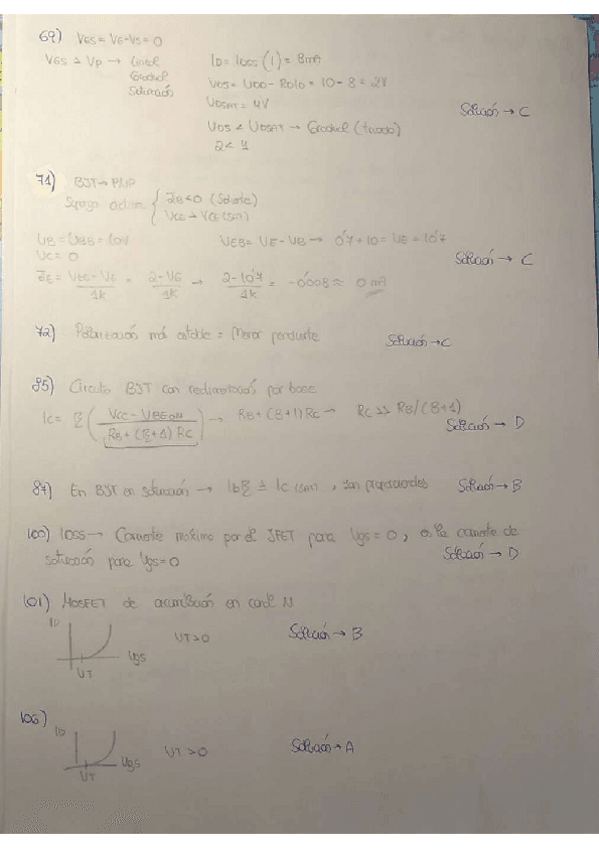 69) VGS = VG - VS = 0
VGS ≥ Vp → Lineal
Gradual
Saturación
ID = IDSS (1) = 8mA
VDS = VDD - RD ID = 10 - 8 = 2V
VDSAT = 4V
VDS < VDSAT → Gradual (triodo)
2 < 4
Solución → C
71) BJT → PNP
IB < 0 (Saliente)
VCE > VCE (sat)
VB = VBB = 10V
VC = 0
VEB = VE - VB → 0'7 + 10 = VE = 10'7
Solución → C
IE = VEE - VE / 1k = 2 - VE / 1K → 2 - 10'7 / 1k = -0'008 ≈ 0 mA
72) Polarización más estable = Menor pendiente
Solución → C
85) Circuito BJT con realimentación por base
IC = β ( VCC - VBEon / RB + (β+1) RC ) → RB + (β+1) RC → RC >> RB/(β+1)
Solución → D
87) En BJT en saturación → Ib β ≠ IC (sat), son proporcionales
Solución → B
100) IDSS → Corriente máxima por el JFET para VGS = 0, es la corriente de
saturación para VGS = 0
Solución → D
101) MOSFET de acumulación en canal N
ID
VT > 0
Solución → B
VGS
VT
106)
ID
VT > 0
Solución → A
VGS
VT